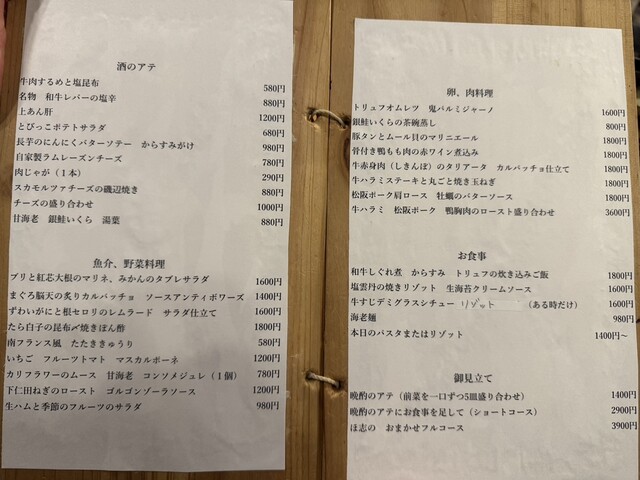 酒のアテ
牛肉するめと塩昆布 580円
名物 和牛レバーの塩辛 880円
上あん肝 1200円
とびっこポテトサラダ 680円
長芋のにんにくバターソテー からすみがけ 980円
自家製ラムレーズンチーズ 780円
肉じゃが（１本） 290円
スカモルツァチーズの磯辺焼き 880円
チーズの盛り合わせ 1000円
甘海老 銀鮭いくら 湯葉 880円
魚介、野菜料理
ブリと紅芯大根のマリネ、みかんのタブレサラダ 1600円
まぐろ脳天の炙りカルパッチョ ソースアンティボワーズ 1400円
ずわいがにと根セロリのレムラード サラダ仕立て 1600円
たら白子の昆布〆焼きぽん酢 1800円
南フランス風 たたききゅうり 580円
いちご フルーツトマト マスカルポーネ 1200円
カリフラワーのムース 甘海老 コンソメジュレ（１個） 780円
下仁田ねぎのロースト ゴルゴンゾーラソース 1200円
生ハムと季節のフルーツのサラダ 980円
卵、肉料理
トリュフオムレツ 鬼パルミジャーノ 1600円
銀鮭いくらの茶碗蒸し 800円
豚タンとムール貝のマリニエール 1800円
骨付き鴨もも肉の赤ワイン煮込み 1800円
牛赤身肉（しきんぼ）のタリアータ カルパッチョ仕立て 1800円
牛ハラミステーキと丸ごと焼き玉ねぎ 1800円
松阪ポーク肩ロース 牡蠣のバターソース 1800円
牛ハラミ 松阪ポーク 鴨胸肉のロースト盛り合わせ 3600円
お食事
和牛しぐれ煮 からすみ トリュフの炊き込みご飯 1800円
塩雲丹の焼きリゾット 生海苔クリームソース 1600円
牛すじデミグラスシチュー リゾット （ある時だけ） 1600円
海老麺 980円
本日のパスタまたはリゾット 1400円～
御見立て
晩酌のアテ（前菜を一口ずつ5皿盛り合わせ） 1400円
晩酌のアテにお食事を足して（ショートコース） 2900円
ほ志の おまかせフルコース 3900円